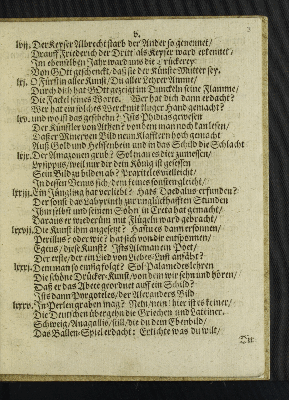 6.
lvij. Der Keyser Albrecht starb der Ander so genennet/
Drauff Friederich der Dritt als Keyser ward erkennet/
Im ehenselben Jahr ward uns die
Von Gott geschenckt/ daß sie der Künste Mutter sey.
lxj. O Fürstin aller Kunst/ Du aller Lehrer Amme/
Durch dich hat Gott gezeigt im Dunckeln seine Flamme/
Die Fackel seines Worts. Wer hat dich dann erdacht?
Wer hat ein solches Werck mit kluger Hand gemacht?
lxv. und wo ist das geschehen? Ists Phidias gewesen
Der Künstler von Athen? von dem man noch kan lesen/
Daß er Minerven Bild neun Klafftern hoch gemacht
Auß Gold und Helffenbein und in das Schild die Schlacht
lxix. Der Amazonen grub? Sol man es dier zumessen/
Lysippus/ weil nur dir dem König ist gesessen
Sein Bild zu hilden ab? Praxiteles vielleicht/
In dessen Venus sich/ dem feines sonsten gleicht/
lxxiij. Ein Jüngling hat verliebt? Hats Dædalus erfunden?
Der sonst das Labyrinth zur unglückhafften Stunden
Ihm selbst und seinem Sohn in Creta hat gemacht/
Daraus er wiederüm mit Flügeln ward gebracht?
lxxvij. Die Kunst ihm angesetzt? Hast u es dann ersonnen/
Perillus? oder wie? hat sich von dir entsponnen/
Egeus/ diese Kunst? Ists Aleman ein Poet/
Der erste/ der ein Lied von Liebes-Lust anfäht?
lxxxj. Dem man so emsig folgt? Sol Palamedes lehren
Die schöne Drücker-Kunst/ von dem wir sehn und hören/
Daß er das Abete geordnet auff ein Schild?
Ists dann Pyrgoteles/ der Alexanders Bild
lxxxv. In Perlen graben mag? Nein/ nein/ hier ist es keiner/
Die Deutschen übergehn die Griechen und Lateiner.
Schweig/ Anagallis/ still/ die du dein Ebenbild/
Das Ballen-Spiel erdacht: Ertichte was du wilt/
Die